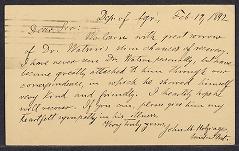 Dep. of Agr., Feb. 19, 1892
Dear Sir:
We learn with great sorrow
of Dr. Watson's slim chances of recovery.
I have never seen Dr. Watson personally, but have
become greatly attached to him through our
correspondence, in which he showed himself
very kind and friendly. I heartily hope
will recover. If you can, please give him my
heartfelt sympathy in his illness.
Very truly yours,
John M. Holzinger